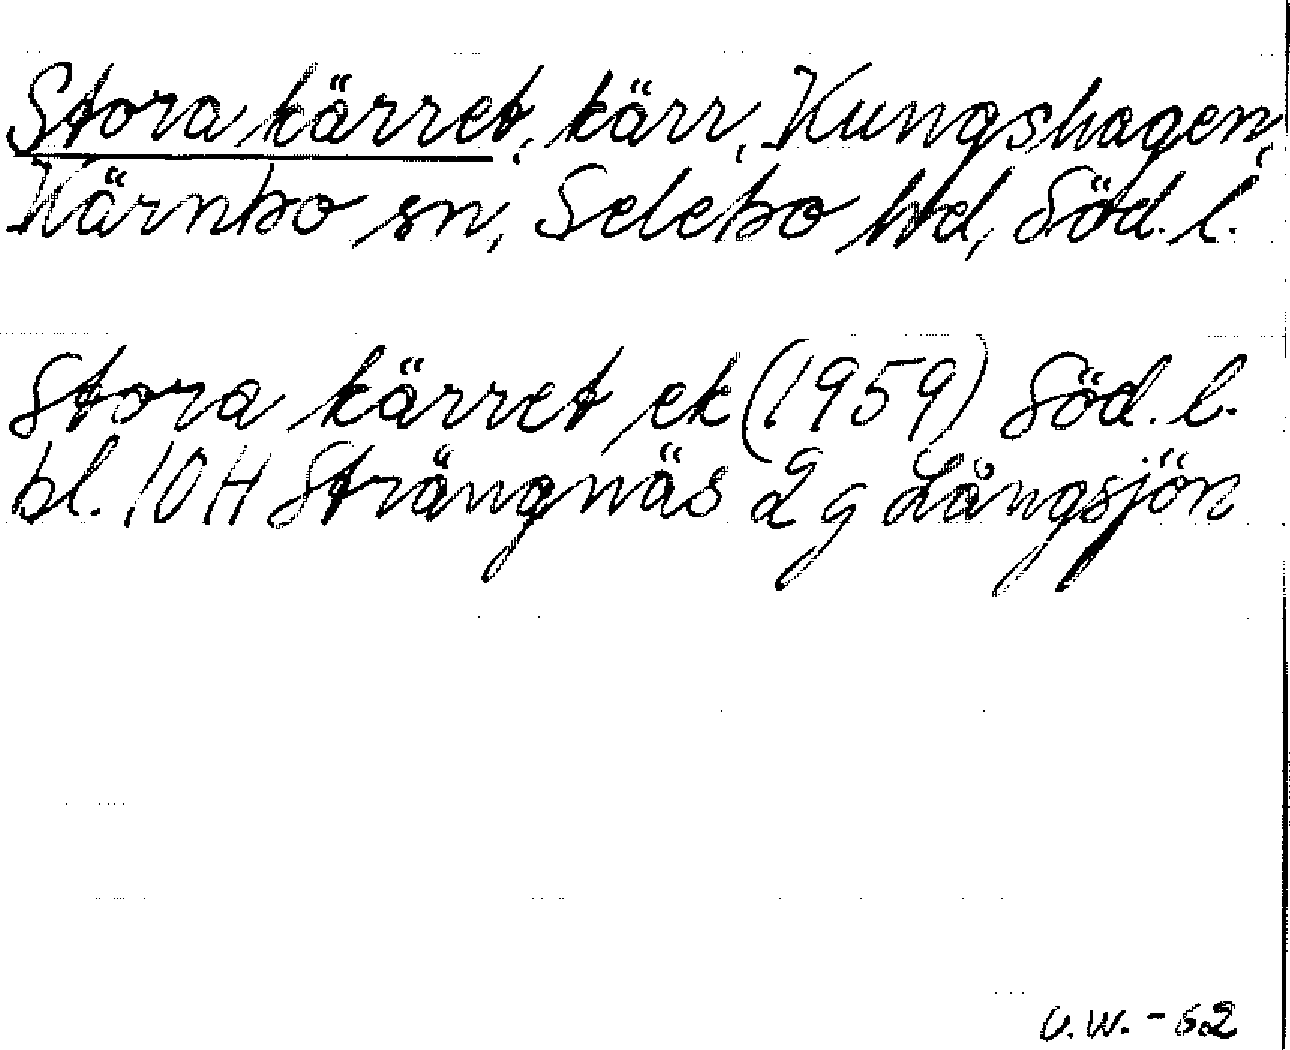 Stora kärret, kärr, Kungshagen,
Kärnbo sn, Selebo hd, Söd. l.
Stora kärret ek (1959) Söd. l.
bl. 10H Strängnäs 2 g Långsjön
U.W. - 62